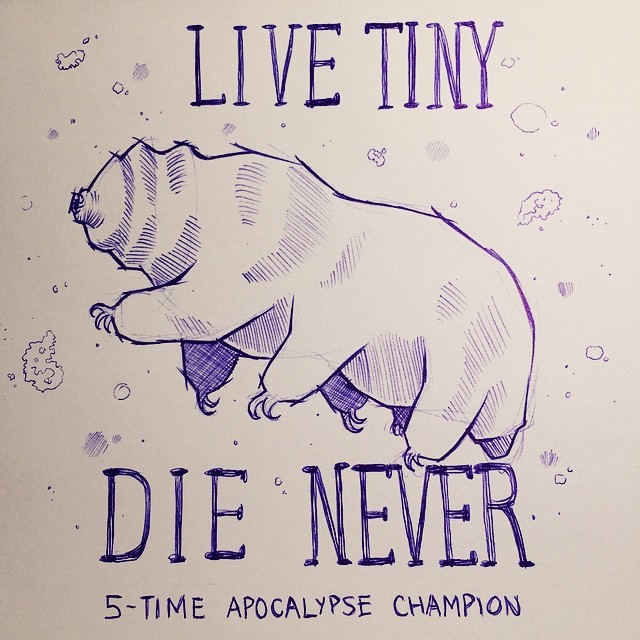 LIVE TINY
DIE NEVER
5-TIME APOCALYPSE CHAMPION